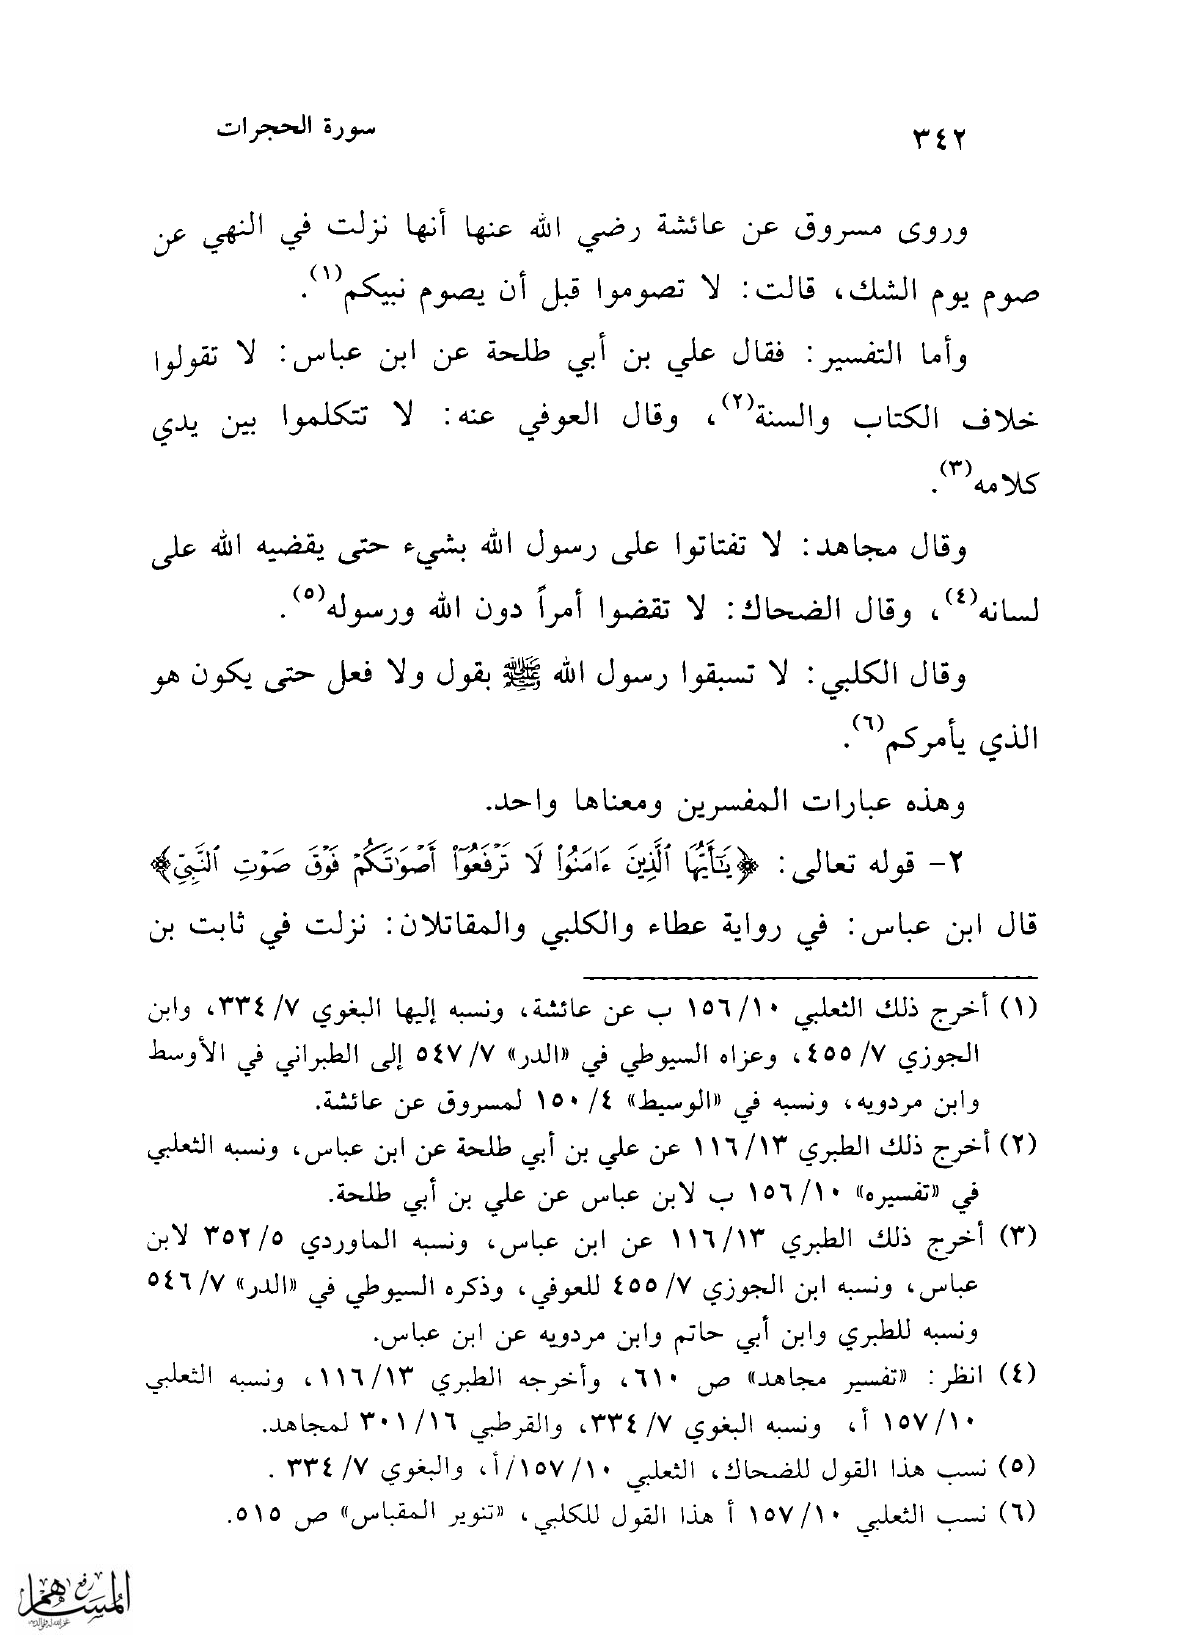 ٣٤٢
سورة الحجرات
وروى مسروق عن عائشة رضي الله عنها أنها نزلت في النهي عن
صوم يوم الشك، قالت: لا تصوموا قبل أن يصوم نبيكم(١).
وأما التفسير: فقال علي بن أبي طلحة عن ابن عباس: لا تقولوا
خلاف الكتاب والسنة(٢)، وقال العوفي عنه: لا تتكلموا بين يدي
كلامه(٣).
وقال مجاهد: لا تفتاتوا على رسول الله بشيء حتى يقضيه الله على
لسانه(٤)، وقال الضحاك: لا تقضوا أمراً دون الله ورسوله(٥).
وقال الكلبي: لا تسبقوا رسول الله ﷺ بقول ولا فعل حتى يكون هو
الذي يأمركم(٦).
وهذه عبارات المفسرين ومعناها واحد.
٢- قوله تعالى: ﴿يَٰٓأَيُّهَا ٱلَّذِينَ ءَامَنُوا۟ لَا تَرْفَعُوٓا۟ أَصْوَٰتَكُمْ فَوْقَ صَوْتِ ٱلنَّبِيِّ﴾
قال ابن عباس: في رواية عطاء والكلبي والمقاتلان: نزلت في ثابت بن
(١) أخرج ذلك الثعلبي ١٠/ ١٥٦ ب عن عائشة، ونسبه إليها البغوي ٧/ ٣٣٤، وابن
الجوزي ٧/ ٤٥٥، وعزاه السيوطي في «الدر» ٧/ ٥٤٧ إلى الطبراني في الأوسط
وابن مردويه، ونسبه في «الوسيط» ٤/ ١٥٠ لمسروق عن عائشة.
(٢) أخرج ذلك الطبري ١٣/ ١١٦ عن علي بن أبي طلحة عن ابن عباس، ونسبه الثعلبي
في «تفسيره» ١٠/ ١٥٦ ب لابن عباس عن علي بن أبي طلحة.
(٣) أخرج ذلك الطبري ١٣/ ١١٦ عن ابن عباس، ونسبه الماوردي ٥/ ٣٥٢ لابن
عباس، ونسبه ابن الجوزي ٧/ ٤٥٥ للعوفي، وذكره السيوطي في «الدر» ٧/ ٥٤٦
ونسبه للطبري وابن أبي حاتم وابن مردويه عن ابن عباس.
(٤) انظر: «تفسير مجاهد» ص ٦١٠، وأخرجه الطبري ١٣/ ١١٦، ونسبه الثعلبي
١٠/ ١٥٧ أ، ونسبه البغوي ٧/ ٣٣٤، والقرطبي ١٦/ ٣٠١ لمجاهد.
(٥) نسب هذا القول للضحاك، الثعلبي ١٠/ ١٥٧/أ، والبغوي ٧/ ٣٣٤ .
(٦) نسب الثعلبي ١٠/ ١٥٧ أ هذا القول للكلبي، «تنوير المقباس» ص ٥١٥.
رفع
المساهم